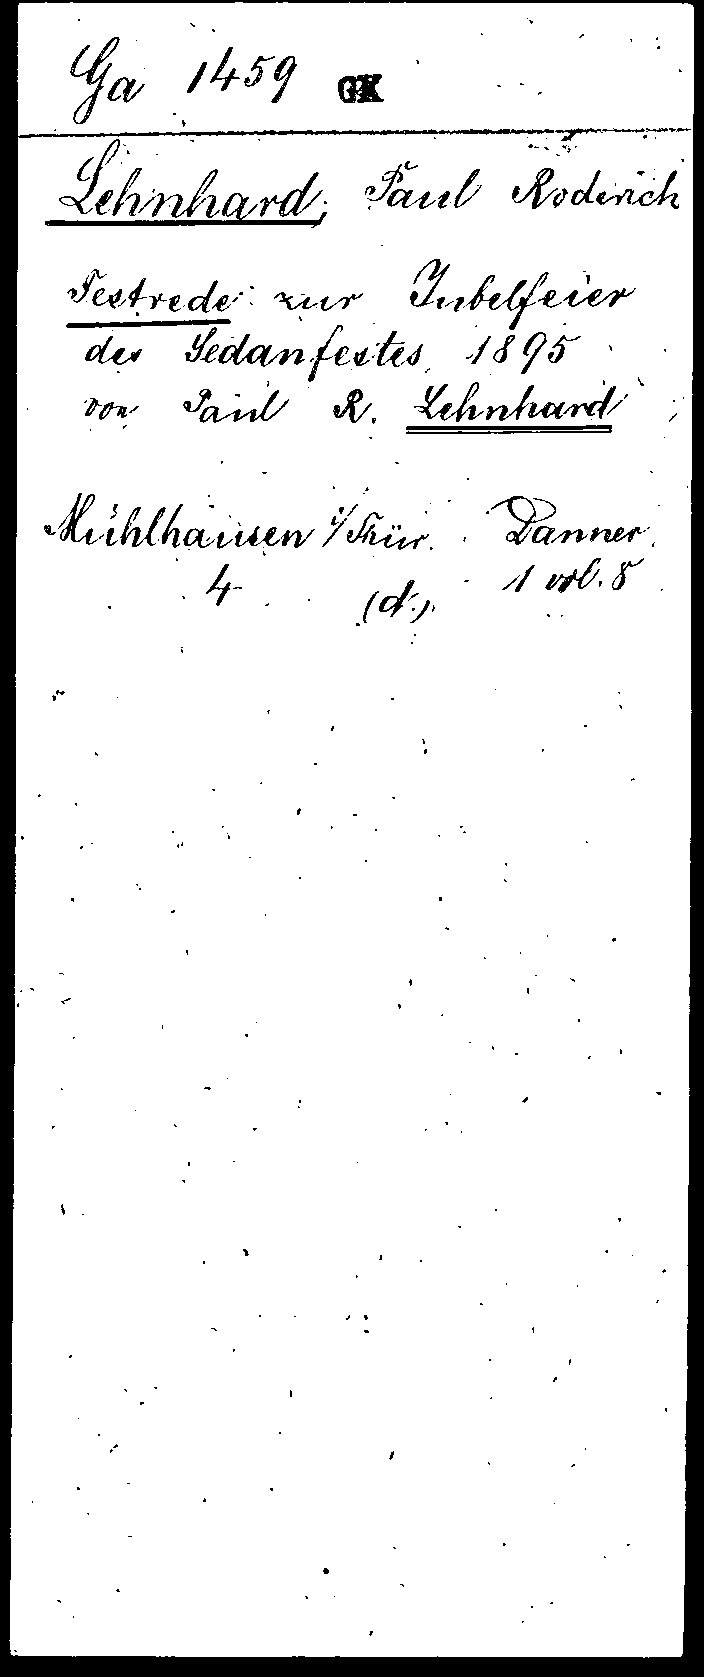 Ga 1459 GK
Lehnhard, Paul Roderich
Festrede zur Jubelfeier
des Sedanfestes, 1895
von Paul R. Lehnhard
Mühlhausen i/Thür. Danner.
4 (d.) 1 vol. 8